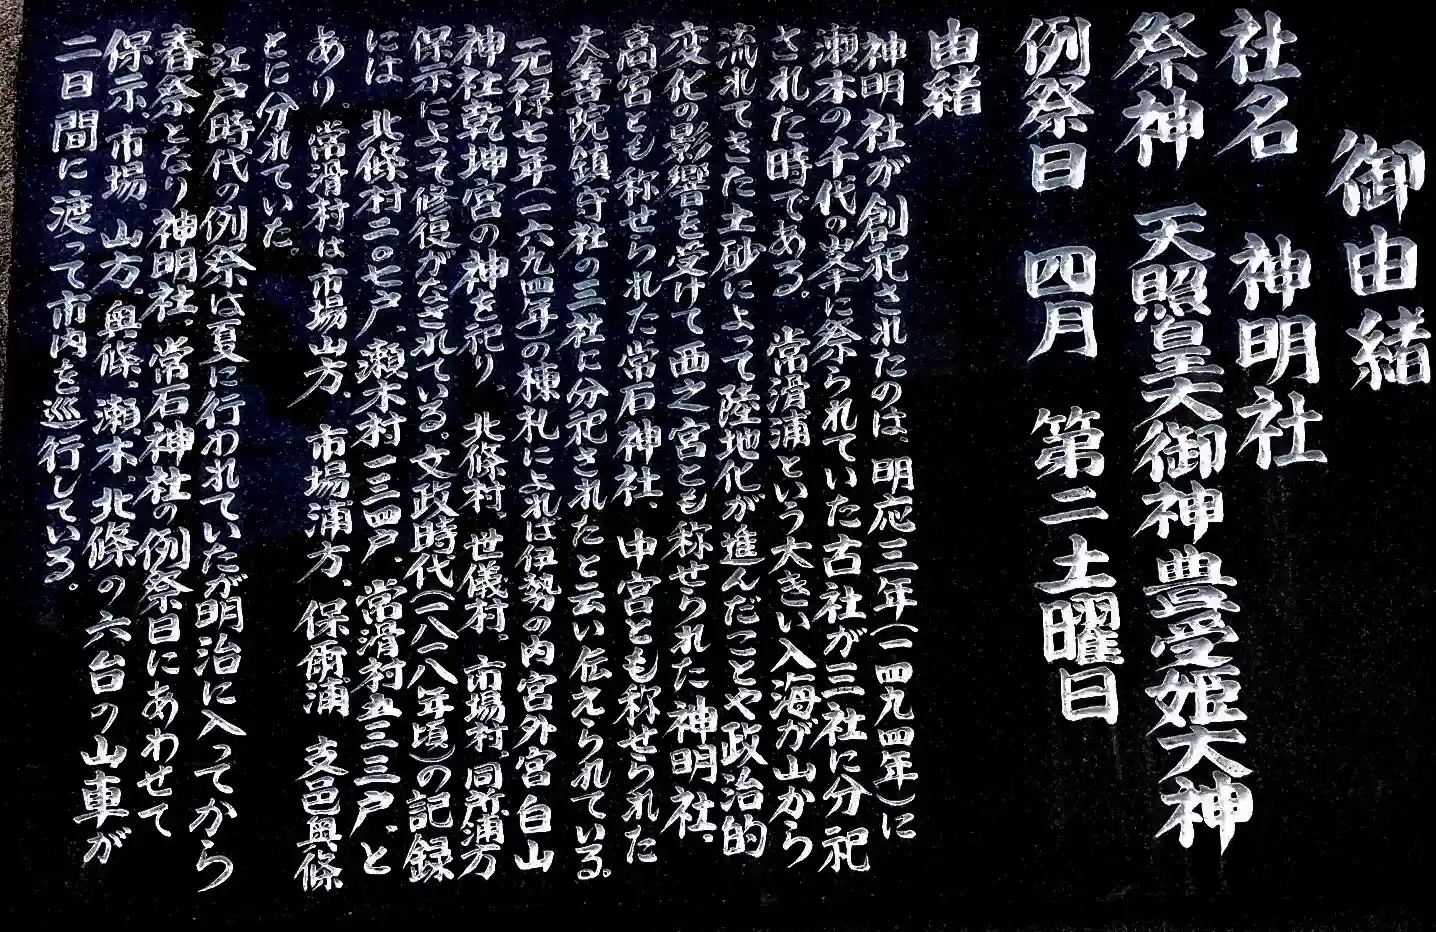 御由緒
社名 神明社
祭神 天照皇大御神 豊受姫大神
例祭日 四月 第二土曜日
由緒
神明社が創祀されたのは、明応三年(一四九四年)に
瀬木の千代の峯に祭られていた古社が三社に分祀
された時である。常滑浦という大きい入海が山から
流れてきた土砂によって陸地化が進んだことや政治的
変化の影響を受けて西之宮とも称せられた神明社、
高宮とも称せられた常石神社、中宮とも称せられた
大善院鎮守社の三社に分祀されたと云い伝えられている。
元禄七年(一六九四年)の棟札によれば伊勢の内宮外宮白山
神社乾坤宮の神を祀り、北條村、世儀村、市場村、同所浦方
保示によって修復がなされている。文政時代(一八一八年頃)の記録
には 北條村二〇七戸、瀬木村一三四戸、常滑村五三三戸、と
あり、常滑村は市場山方、市場浦方、保示浦 支邑奥條
とに分れていた。
江戸時代の例祭は夏に行われていたが明治に入ってから
春祭となり神明社、常石神社の例祭日にあわせて
保示、市場、山方、奥條、瀬木、北條の六台の山車が
二日間に渡って市内を巡行している。